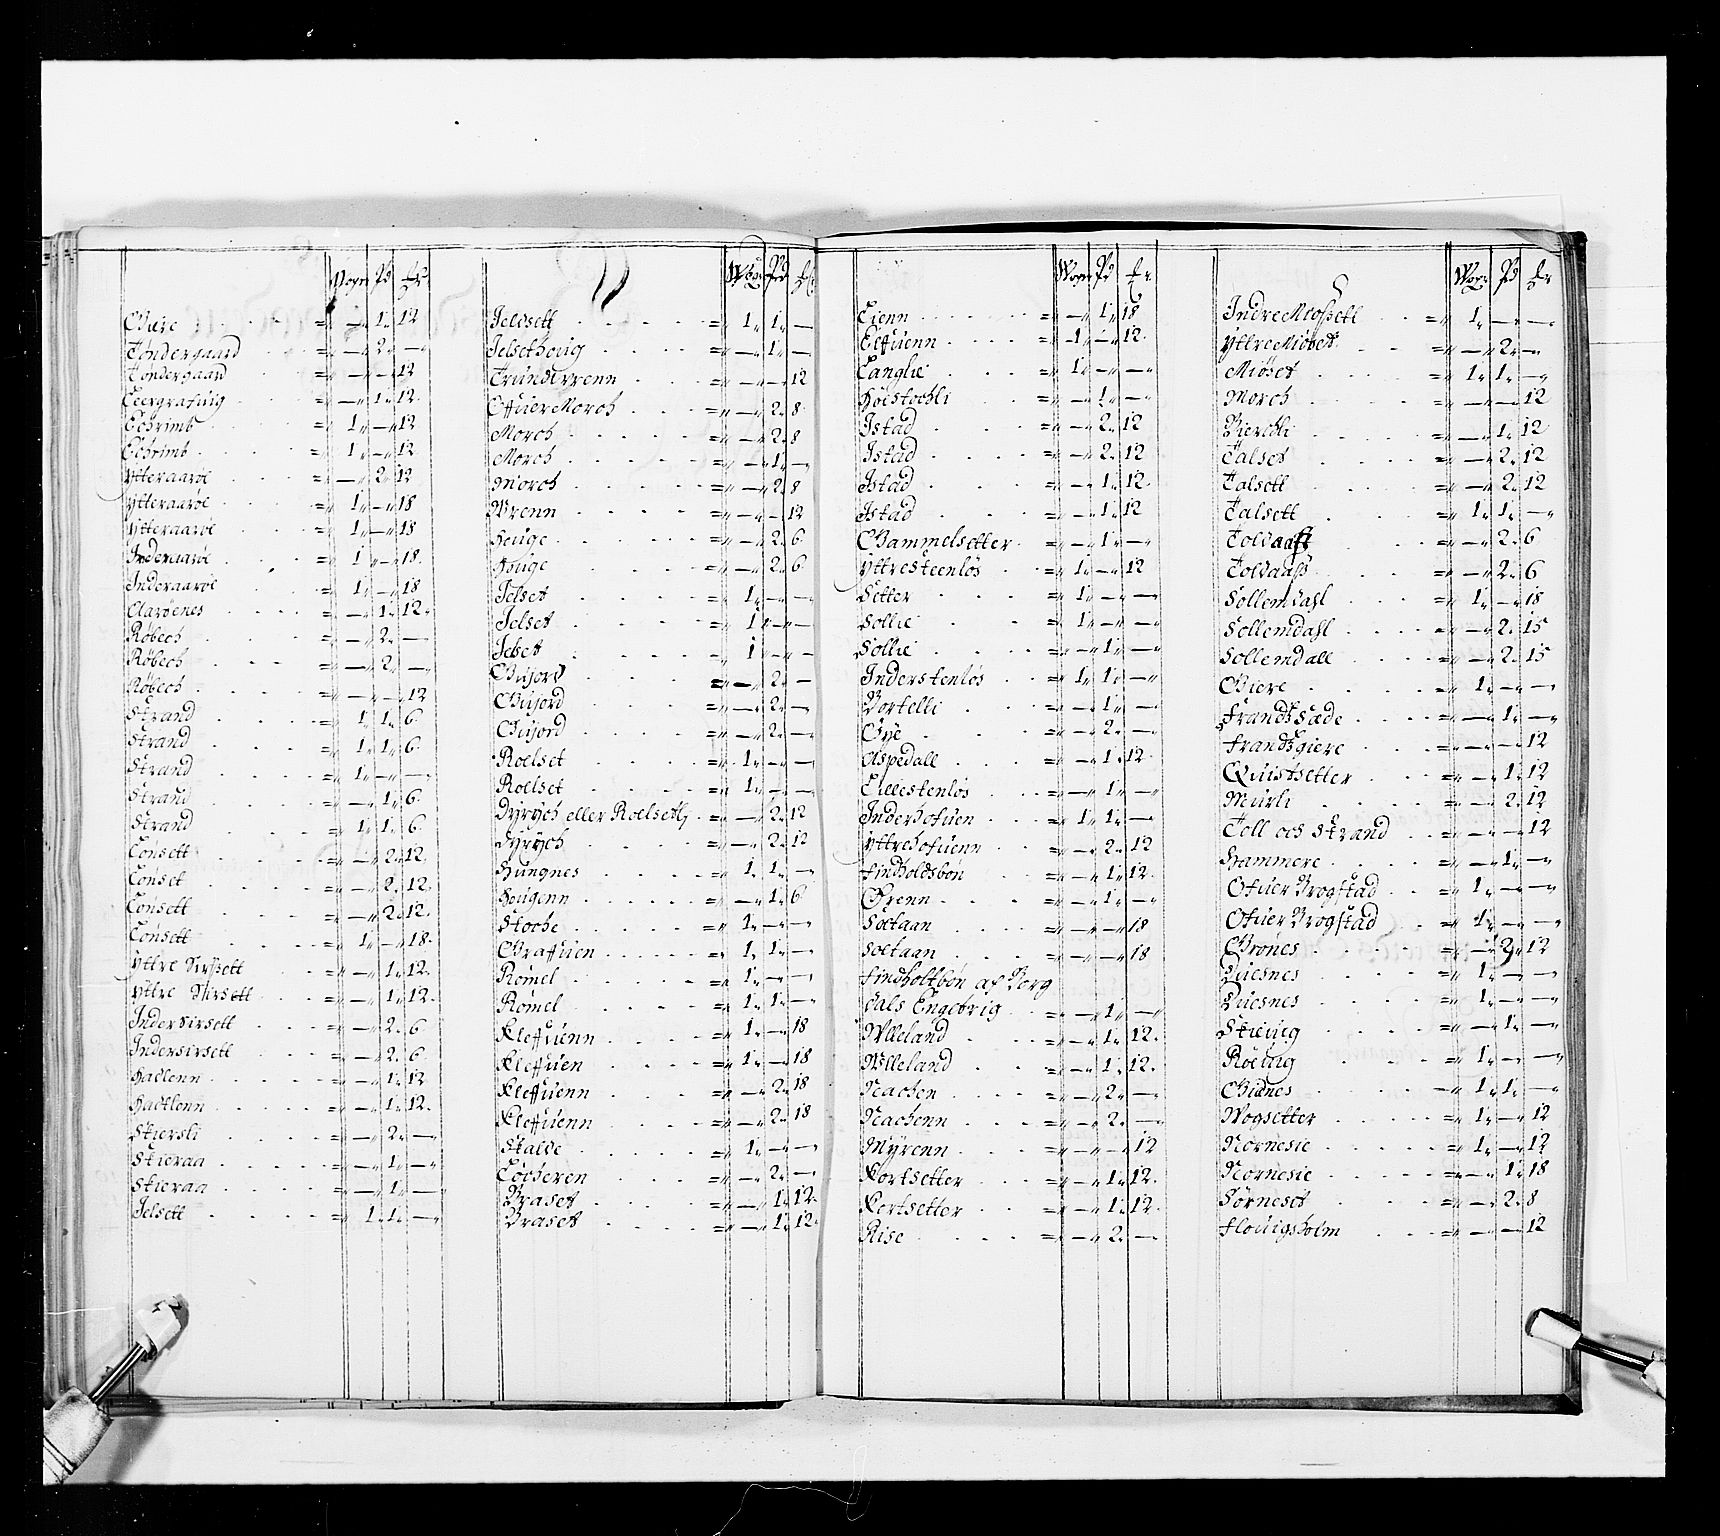 Woger Pd
Giøre = — 1. 12
Tøndergaard = — 2. —
Tøndergaard = — — 12
Leergrafuiig = — 1. 12.
Echrimb = 1. — 12
Echrimb = 1. — 12
Ytteraarøe = — 2. 12
Ytteraarøe = 1. — 18
Ytteraarøe = 1. — 18
Inderaarøe = 1 — 18.
Inderaarøe = 1. — 18
Aarøenes = — 1. 12.
Røbech = — 2. —
Røbech = — 2. —
Røbech = — — 12
Strand = 1. 1. 6
Strand = 1. 1. 6.
Strand = 1. — —
Strand = — 1. 6.
Strand = 1. 1. 6.
Lønsett = — 2. 12.
Lønset = — 2. 12.
Lønsett = — 2. 12.
Lønsett = 1. — 18.
Yttre Sirsett = — 1. 12.
Yttre Sirsett = — 1. 12.
Inder Sirsett = — 2. 6
Indersirsett = — 2. 6.
Hatlenn = — 1. 12
Hatlenn = — 1. 12.
Skiersli = — 2. —
Skieraa = — 1. —
Skieraa = — 1. —
Jelsett 1. 1. —
Jelsett = 1. 1. —
Jelsethoug = — 1. —
Trunderrenn = — — 12
Offuer Moroch = — 2. 8.
Moroch = — 2. 8
Moroch = — 1. —
Moroch = — 2. 8
Wrenn = — — 12
Houge = — 2. 6.
Houge = — 2. 6.
Jelset = 1. — —
Jelset = 1 — —
Jelset = 1 — —
Guiord = — 2. —
Guiord = — 2. —
Guiord = — 2. —
Roelset = 1. — —
Roelset = 1. — —
Dyrych eller Roelsett = — 2. 12
Dyrych = — 2. 12
Hungnes = 1. 1. —
Hougenn = — 1. 6
Stoche = 1. — —
Graffuen = 1. 1. —
Romel = 1. — —
Romel = 1. 1. —
Kleffuenn = 1. — 18
Kleffuen = 1. — 18
Kleffuenn = — 2. 18
Kleffuenn = — 2. 18
Skalde = 1. — —
Løcheren = — 2. —
Braset = — 1. 12.
Braset = — 1. 12.
Woger Pd
Lienn = — 1. 18
Elfuenn = 1. — 12.
Langlie = 1. — —
Høistochli = — 1. —
Istad = — 2. 12
Istad = — 2. 12
Istad = — 1. 12.
Istad = — 1. 12
Gammelsetter = — 1. —
Yttresteenløs = 1. — 12
Setter = 1. — —
Sollie = 1. — —
Sollie = — 1. —
Inderstenløs = 1. 1. —
Portelli = — 1. —
Gye = — 2. —
Aspedall = — 1. 12.
Lillestenløs = — 1. —
Inderhofuen = 1. 1. —
Yttrehofuenn = — 2. 12
Findholdsbøn = — 1. 12.
Ørenn = — 1. —
Soltaan = — — 18
Soltaan = — — 18
Findholtbøn af Borg
dals Engebrig = — 1. —
Ulleland = — 1. 12.
Ulleland = — 1. 12.
Nachen = — 2. —
Nachenn = — 2. —
Myrenn = — — 12
Kortsetter = — 1. 12.
Kortsetter = — 1. 12.
Rise = — 2. —
Woger Pd
Indre Miossett = 1. — —
Yttre Miøset = — 2. —
Miøset = 1. 1. —
Moroch = — — 12
Biercheli = — 1. 12
Talset = — 2. 12
Talsett = — 2. 12
Talsett = 1. 1. —
Toldaas = — 2. 6
Toldaas = — 2. 6
Sollemdall = 1. — 18
Sollemdall = — 2. 15
Sollemdall = — 2. 15
Giere = 1. — —
Frandssæde = — 1. —
Frandsgiere = — — 12
Quistsetter = — 1. 12
Mürli = — 2. 12
Tell och Strand = — — 12
Hammere = — 1. —
Ofuer Brogstad = 1. — —
Ofuer Brogstad = 1. — —
Grønes = — 2. 12
Duesnes = 1. — —
Duesnes = 1. — —
Skieuig = — 1. —
Røeuig = 1. — —
Gidnes = 1. 1. —
Wogsetter = 1. — 12
Nørnesie = 1. — 12
Nørnesie = — 1. 18
Sørneset = — 2. 8
Flouigsholm = — — 12